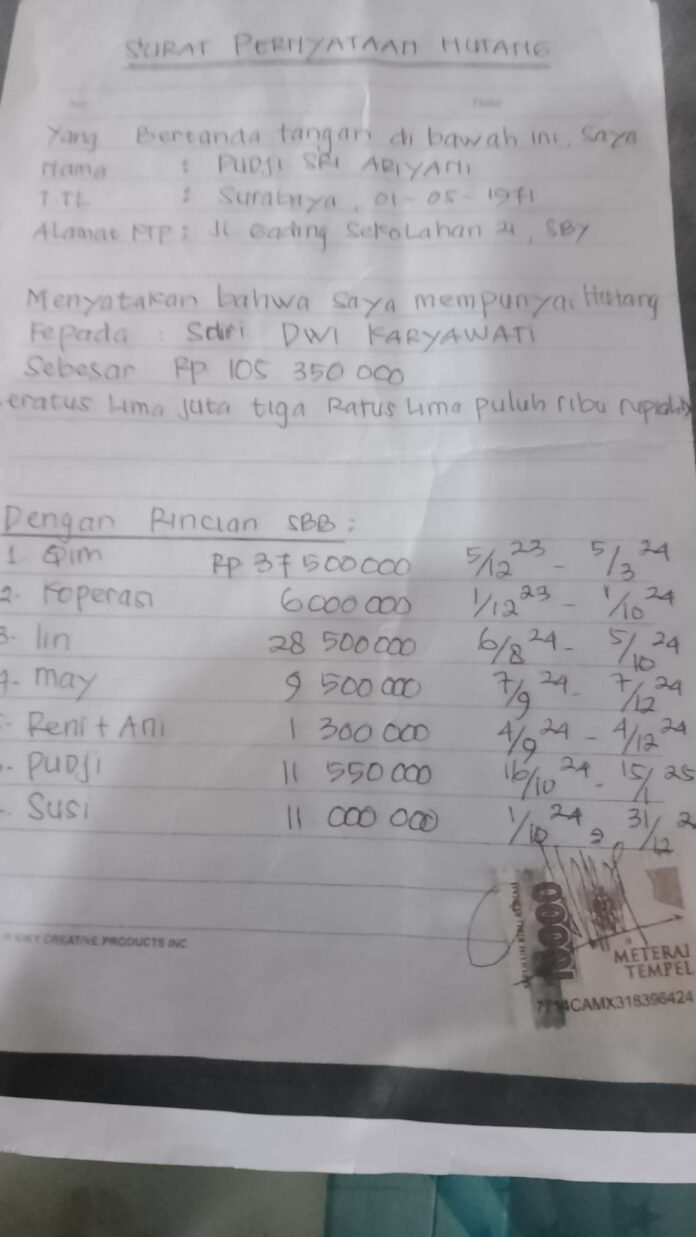 SURAT PERNYATAAN HUTANG
No. Date
Yang Bertanda tangan di bawah ini, Saya
Nama : PUDJI SRI ARIYANI
T.TL : Surabaya, 01-05-1971
Alamat KTP : Jl. Gading Sekolahan 21, SBY
Menyatakan bahwa saya mempunyai Hutang
Kepada : Sdri DWI KARYAWATI
Sebesar Rp 105 350 000
eratus lima juta tiga Ratus lima puluh ribu rupiah
Dengan Rincian SBB :
1 Rp 37 500 000 5/12 23 - 5/3 24
2. Koperasi 6 000 000 1/12 23 - 1/10 24
3. Iin 28 500 000 6/8 24 - 5/10 24
4. May 9 500 000 7/9 24 - 7/12 24
Reni + Ani 1 300 000 4/9 24 - 4/12 24
PUDJI 11 550 000 16/10 24 - 15/1 25
Susi 11 000 000 1/10 24 31/12 2
CREATIVE PRODUCTS INC
10000
METERAI
TEMPEL
CAMX318396424